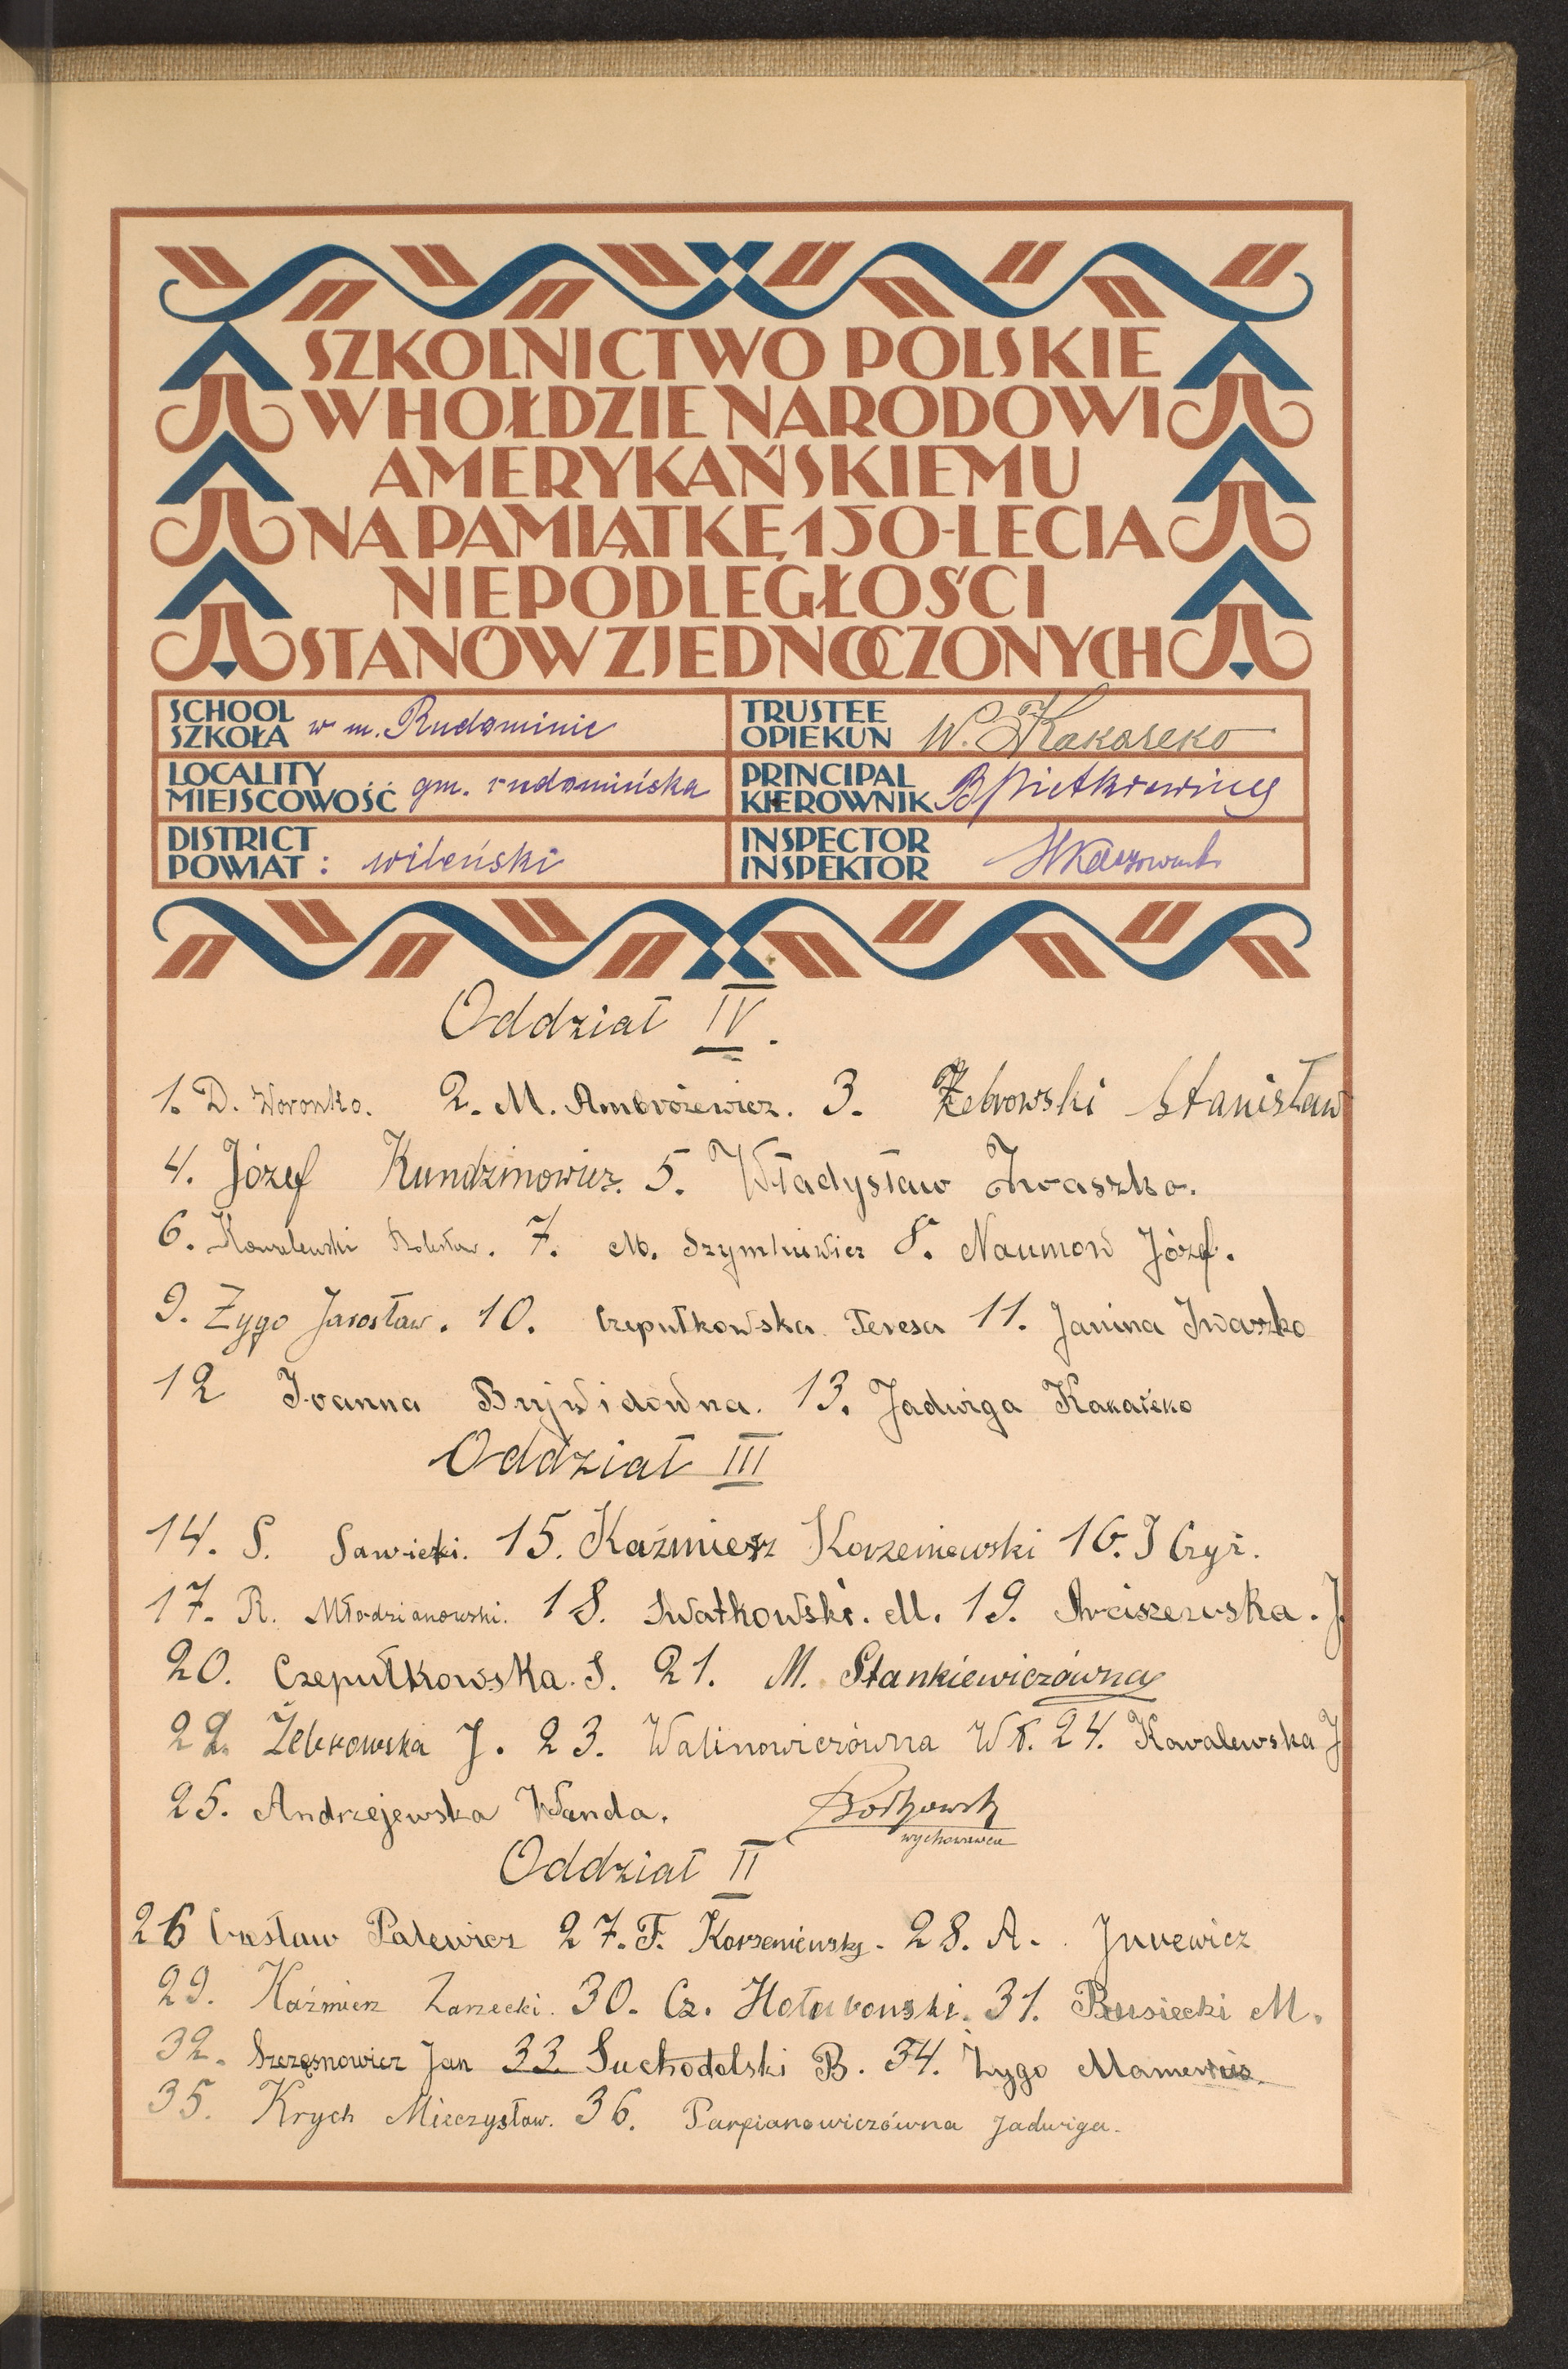 SZKOLNICTWO POLSKIE
W HOŁDZIE NARODOWI
AMERYKAŃSKIEMU
NA PAMIĄTKĘ 150-LECIA
NIEPODLEGŁOŚCI
STANÓW ZJEDNOCZONYCH
SCHOOL
SZKOŁA w m. Rudominie
TRUSTEE
OPIEKUN W. Kakareko
LOCALITY
MIEJSCOWOŚĆ gm. rudomińska
PRINCIPAL
KIEROWNIK B Pietkiewicz
DISTRICT
POWIAT : wileński
INSPECTOR
INSPEKTOR
Oddział IV.
1. D. Woronko. 2. M. Ambrożewicz. 3. Żebrowski Stanisław
4. Józef Kundzinowicz. 5. Władysław Iwaszko.
6. Kowalewski Bolesław. 7. M. Szymkiewicz 8. Naumow Józef.
9. Zygo Jarosław. 10. Czepułkowska Teresa 11. Janina Iwaszko
12 Joanna Bujwidówna. 13. Jadwiga Kakareko
Oddział III
14. S. Sawicki. 15. Kaźmierz Korzeniewski 16. J Czyż.
17. R. Młodzianowski. 18. Swatkowski. M. 19. Iwaszewska. J.
20. Czepułkowska. S. 21. M. Stankiewiczówna
22. Żebrowska J. 23. Walinowiczówna Wł. 24. Kowalewska J
25. Andrzejewska Wanda.
wychowawca
Oddział II
26 Czesław Palewicz 27. F. Korzeniewski. 28. A. Jurewicz
29. Kaźmierz Zarzecki. 30. Cz. Hołubowski. 31. Rusiecki M.
32. Szczęsnowicz Jan 33 Suchodolski B. 34. Zygo
35. Krych Mieczysław. 36. Parpianowiczówna Jadwiga.